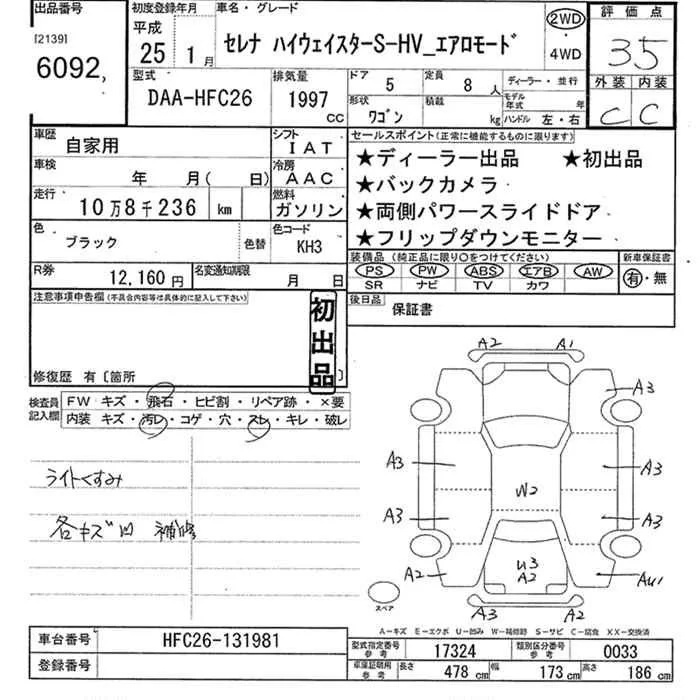 出品番号 初度登録年月 車名・グレード 評価点
[2139] 平成 2WD
6092, 25 1月 セレナ ハイウェイスターS-HV_エアロモード ・ 35
4WD
型式 排気量 ドア 定員 ディーラー・並行 外装 内装
DAA-HFC26 1997 CC 5 8人 モデル年式 年 C C
形状 積載
ワゴン kg ハンドル 左・右
車歴 自家用 シフト IAT セールスポイント(正常に機能するものに限ります)
車検 年 月( 日) 冷房 AAC ★ディーラー出品 ★初出品
★バックカメラ
走行 10万8千236 km 燃料 ガソリン ★両側パワースライドドア
色 ブラック 色替 色コード KH3 ★フリップダウンモニター
装備品(純正品に限り〇をつけてください) 新車保証書
R券 12,160円 名変通知期限 月 日 PS PW ABS エアB AW 有・無
SR ナビ TV カワ
注意事項申告欄(不具合内容等は具体的に記入して下さい) 初出品 後日品 保証書
修復歴 有〔箇所 〕
検査員記入欄 FW キズ・飛石・ヒビ割・リペア跡・×要
内装 キズ・汚レ・コゲ・穴・スレ・キレ・破レ
ライトくすみ
各キズ凹 補修
A2 A1
A3
A3 A3
W2
A3 A3
U3
A2 A2 AU1
A3 A2
スペア
A-キズ E-エクボ U-凹み W-補修跡 S-サビ C-腐食 XX-交換済
車台番号 HFC26-131981 型式指定番号 参考 17324 類別区分番号 参考 0033
登録番号 車庫証明用 参考 長さ 478cm 幅 173cm 高さ 186cm